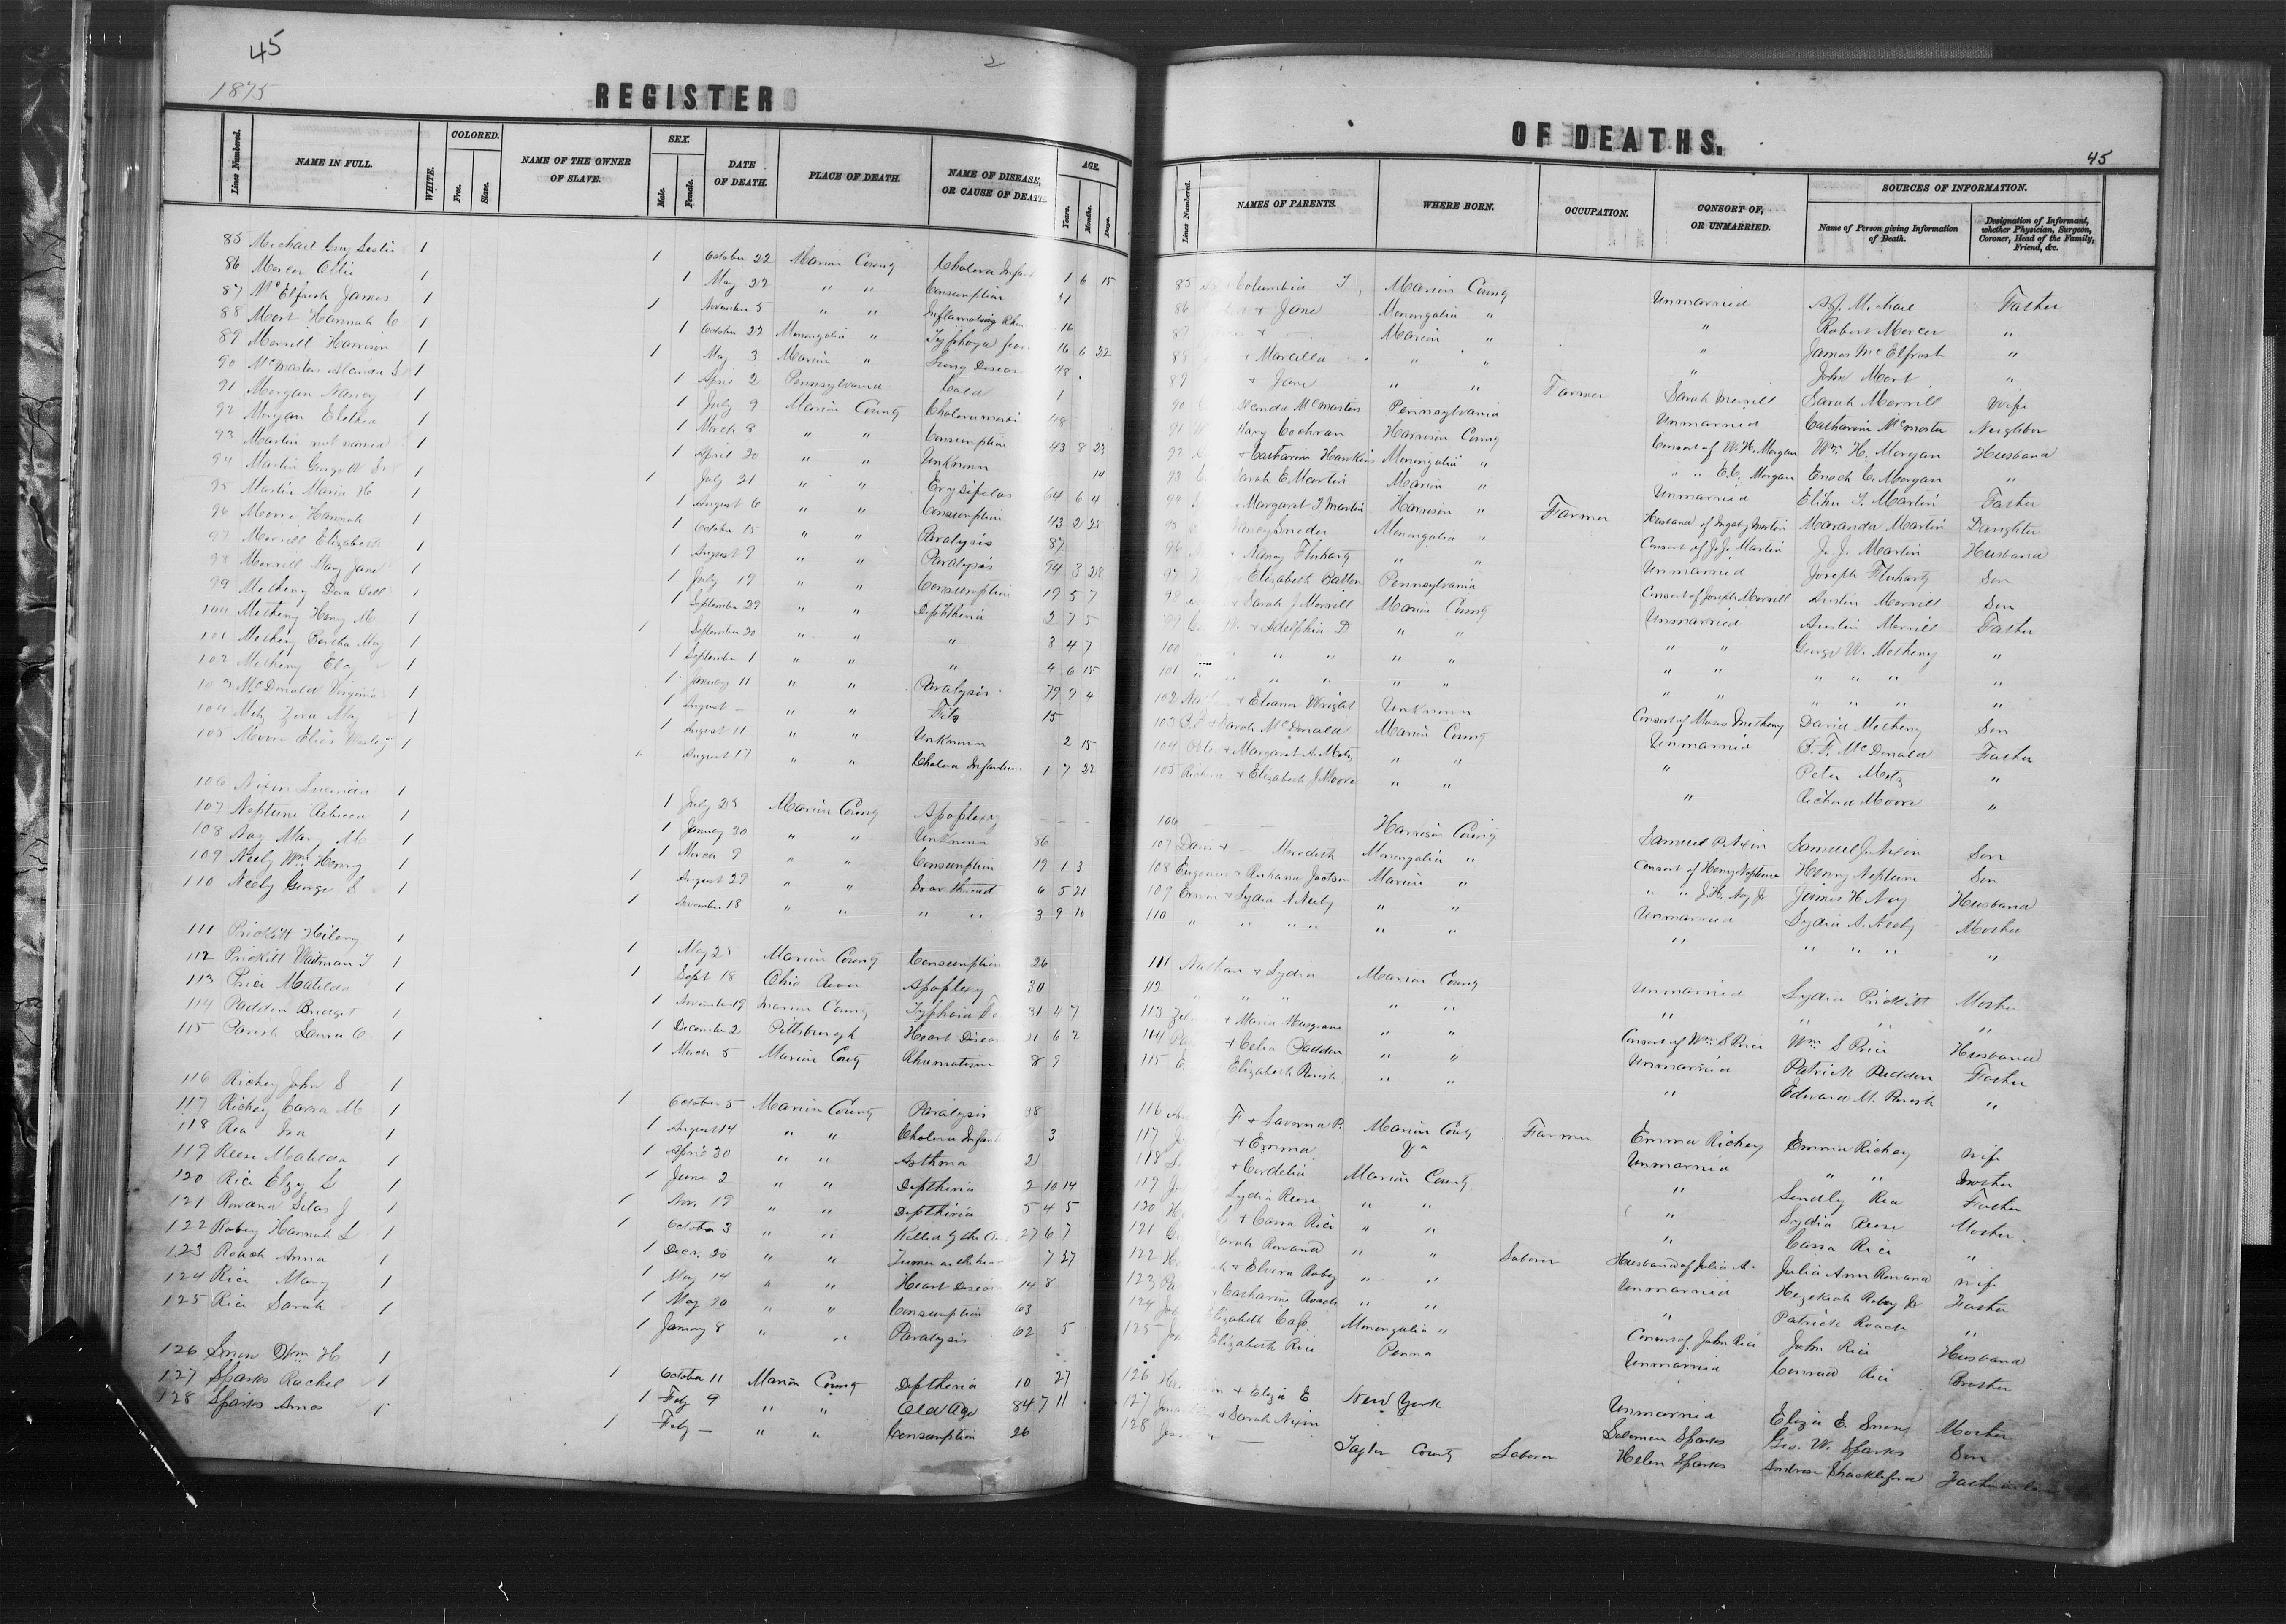 45
1875
REGISTER
OF DEATHS.
45
Lines Numbered.
NAME IN FULL.
WHITE.
COLORED.
Free.
Slave.
NAME OF THE OWNER
OF SLAVE.
SEX.
Male.
Female.
DATE
OF DEATH.
PLACE OF DEATH.
NAME OF DISEASE,
OR CAUSE OF DEATH.
AGE.
Years.
Months.
Days.
Lines Numbered.
NAMES OF PARENTS.
WHERE BORN.
OCCUPATION.
CONSORT OF,
OR UNMARRIED.
SOURCES OF INFORMATION.
Name of Person giving Information
of Death.
Designation of Informant,
whether Physician, Surgeon,
Coroner, Head of the Family,
Friend, &c.
85 Michael Guy Leslie 1 1 October 22 Marion County Cholera Infant 1 6 15 85 Columbia Marion County Unmarried Michael Father
86 Mercer Ollie 1 1 May 22 " " Consumption 86 + Jane Monongalia " " Robert Mercer "
87 McElfresh James 1 1 November 5 " " Inflamatory Rheu 16 87 Marion " " James McElfresh "
88 Mort Hannah C 1 1 October 22 Monongalia " Typhoid fever 16 6 22 88 + Marcella " " " John Mort "
89 Merrill Harrison 1 1 May 3 Marion " Lung Disease 48 89 + Jane " " Farmer Sarah Merrill Sarah Merrill Wife
90 McMasters 1 1 April 2 Pennsylvania Cold 1 90 McMasters Pennsylvania Unmarried Catharine McMaster Neighbor
91 Morgan Nancy 1 1 July 9 Marion County Cholera morbi 48 91 Mary Cochran Harrison County Consort of W. H. Morgan Wm. H. Morgan Husband
92 Morgan 1 1 March 8 " " Consumption 43 8 23 92 + Catharine Hawkins Monongalia " " " E. C. Morgan Enoch C. Morgan "
93 Martin not named 1 1 April 20 " " Unknown 14 93 Sarah E Martin Marion " Unmarried Elihu Martin Father
94 Martin 1 1 July 21 " " Erysipelas 64 6 4 94 Margaret Martin Harrison " Farmer Husband of Martin Maranda Martin Daughter
95 Martin Maria H 1 1 August 6 " " Consumption 43 2 25 95 Nancy Snider Monongalia " Consort of J. J. Martin J. J. Martin Husband
96 Moore Hannah 1 1 October 15 " " Paralysis 87 96 + Nancy Fluharty " " Unmarried Joseph Fluharty Son
97 Merrill Elizabeth 1 1 August 9 " " Paralysis 74 3 28 97 + Elizabeth Batton Pennsylvania Consort of Joseph Merrill Austin Merrill Son
98 Merrill Mary Jane 1 1 July 19 " " Consumption 19 5 7 98 + Sarah J Merrill Marion County Unmarried Austin Merrill Father
99 Metheny Dora Bell 1 1 September 29 " " Diphtheria 2 7 5 99 W. + Adelphia D " " " " George W. Metheny "
100 Metheny Henry M 1 1 September 20 " " " 8 4 7 100 " " " " " " " " " "
101 Metheny Bertha May 1 1 September 1 " " " 4 6 15 101 " " " " " " " " " "
102 Metheny 1 1 January 11 " " Paralysis 79 9 4 102 + Eleanor Wright Unknown Consort of Moses Metheny David Metheny Son
103 McDonald Virginia 1 1 August — " " Fits 15 103 B. F. + Sarah McDonald Marion County Unmarried B. F. McDonald Father
104 Metz Zora May 1 1 August 11 " " Unknown 2 15 104 Peter + Margaret A. Metz " " " Peter Metz "
105 Moore Elias Wesley 1 1 August 17 " " Cholera Infantum 1 7 22 105 Richard + Elizabeth J Moore " " " Richard Moore "
106 Nixon 1 1 July 25 Marion County Apoplexy — — — 106 — Harrison County Samuel P. Nixon Samuel J. Nixon Son
107 Neptune Rebecca 1 1 January 20 " " Unknown 86 107 Davis + — Meredith Monongalia " Consort of Henry Neptune Henry Neptune Son
108 Nay Mary M 1 1 March 9 " " Consumption 19 1 3 108 Eugenus + Ruhana Jackson Marion " " " J. H. Nay Jr James H. Nay Husband
109 Neely Wm Henry 1 1 August 29 " " Sore throat 6 5 21 109 + Lydia A Neely " " Unmarried Lydia A. Neely Mother
110 Neely George S 1 1 November 18 " " " " 3 9 10 110 " " " " " " " " " " "
111 Prickitt Hilery 1 1 May 25 Marion County Consumption 26 111 Nathan + Lydia Marion County Unmarried Lydia Prickitt Mother
112 Prickitt Waitman T 1 1 Sept 18 Ohio River Apoplexy 30 112 " " " " " " " " "
113 Price Matilda 1 1 November 19 Marion County Typhoid Fe 31 4 7 113 + Maria Musgrave " " Consort of Wm S Price Wm S Price Husband
114 Padden Bridget 1 1 December 2 Pittsburgh Heart Diseas 21 6 2 114 + Celia Padden " " Unmarried Patrick Padden Father
115 Parish Laura C 1 1 March 5 Marion County Rhumatism 8 9 115 Elizabeth Parish " " " Edward M. Parish "
116 Richey John S 1 1 October 5 Marion County Paralysis 38 116 F + Saverna P. Marion County Farmer Emma Richey Emma Richey Wife
117 Richey Carra M 1 1 August 14 " " Cholera Infant 3 117 + Emma Va Unmarried " " Mother
118 Rea Ira 1 1 April 30 " " Asthma 2 118 + Cordelia Marion County " Lindly Rea Father
119 Reese Matilda 1 1 June 2 " " Diptheria 2 10 14 119 Lydia Reese " " " Lydia Reese Mother
120 Rice Elzy L 1 1 Nov. 19 " " Diptheria 5 4 5 120 L + Cassa Rice " " " Cassa Rice "
121 Rowand Silas J 1 1 October 3 " " Killed by the Cars 27 6 7 121 Sarah Rowand " " Laborer Husband of Julia A. Julia Ann Rowand Wife
122 Robey Hannah L 1 1 Dec. 20 " " Tumor on the head 7 27 122 + Elvira Robey " " Unmarried Hezekiah Robey Jr Father
123 Roach Anna 1 1 May 14 " " Heart Diseas 14 8 123 + Catharine Roach " " " Patrick Roach "
124 Rice Mary 1 1 May 20 " " Consumption 63 124 Elizabeth Monongalia " Consort of John Rice John Rice Husband
125 Rice Sarah 1 1 January 8 " " Paralysis 62 5 125 Elizabeth Rice Penna Unmarried Conrad Rice Brother
126 Snow Wm H 1 1 October 11 Marion County Diptheria 10 27 126 + Eliza E New York Unmarried Eliza E. Snow Mother
127 Sparks Rachel 1 1 Feby 9 " " Old Age 84 7 11 127 + Sarah Nixon Solomon Sparks Geo. W. Sparks Son
128 Sparks Amos 1 1 Feby — " " Consumption 26 128 Taylor County Laborer Helen Sparks Andrew Shackleford Father in law